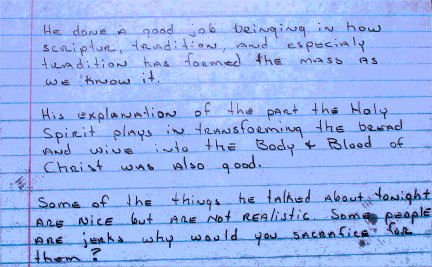 He done a good job beinging in how
scriptur, tradition, and especialy
tradition has formed the mass as
we know it.
His explanation of the part the Holy
Spirit plays in transforming the bread
and wine into the Body & Blood of
Christ was also good.
Some of the things he talked about tonight
are nice but are not realistic. Some people
are jerks why would you sacrafice for
them?